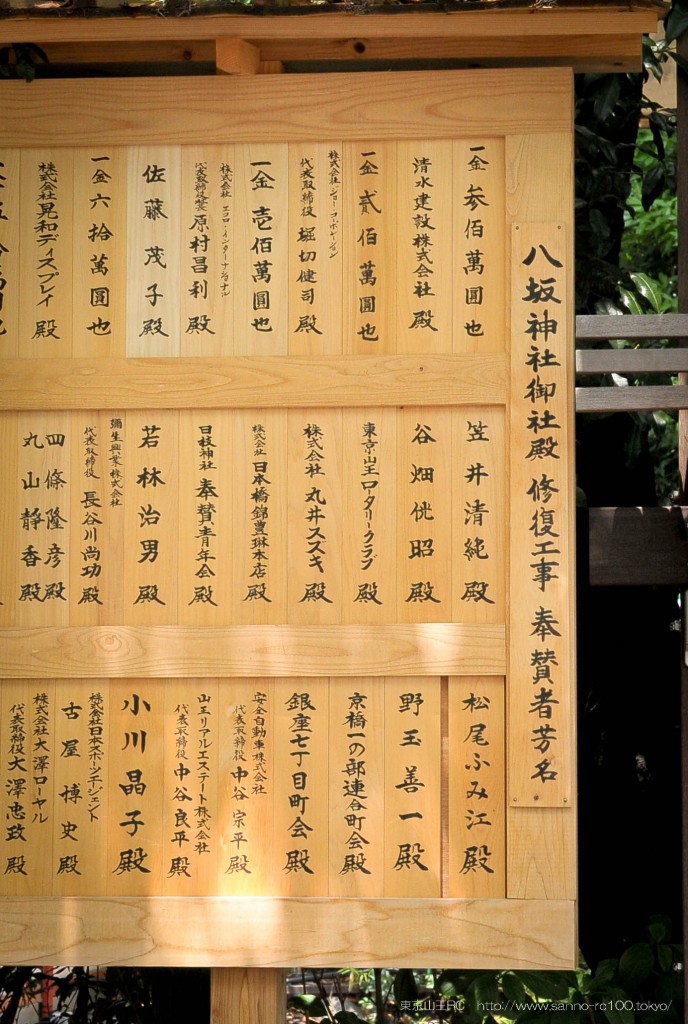 八坂神社御社殿 修復工事 奉賛者芳名
一金 参佰萬圓也
清水建設株式会社 殿
一金 貳佰萬圓也
株式会社ジョー・コーポレーション
代表取締役 堀切健司 殿
一金 壱佰萬圓也
株式会社 エコロ・インターナショナル
代表取締役 原村昌利 殿
佐藤茂子 殿
一金 六拾萬圓也
株式会社 晃和ディスプレイ 殿
笠井清純 殿
谷畑侊昭 殿
東京山王ロータリークラブ 殿
株式会社 丸井スズキ 殿
株式会社 日本橋錦豊琳本店 殿
日枝神社 奉賛青年会 殿
若林治男 殿
彌生興業株式会社
代表取締役 長谷川尚功 殿
四條隆彦 殿
丸山静香 殿
松尾ふみ江 殿
野玉善一 殿
京橋一の部連合町会 殿
銀座七丁目町会 殿
安全自動車株式会社
代表取締役 中谷宗平 殿
山王リアルエステート株式会社
代表取締役 中谷良平 殿
小川晶子 殿
株式会社日本スポーツエージェント
古屋博史 殿
株式会社 大澤ローヤル
代表取締役 大澤忠政 殿
東京山王RC http://www.sanno-rc100.tokyo/